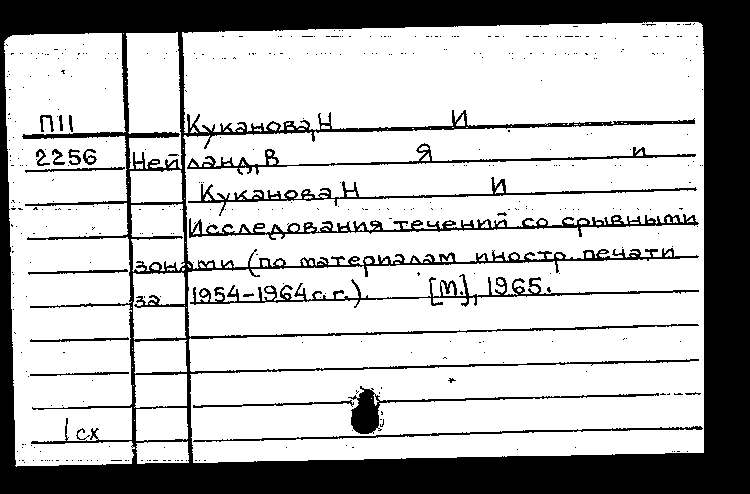 П11 Куканова, Н И
2256 Нейланд, В Я и
Куканова, Н И
Исследования течений со срывными
зонами (по материалам иностр. печати
за 1954-1964 г.г.). [М.], 1965.
1 сх